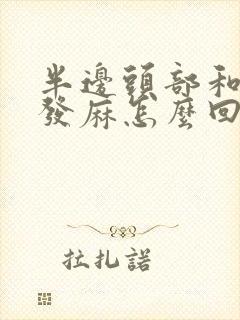 半邊頭部和
發麻怎麼回
拉扎諾